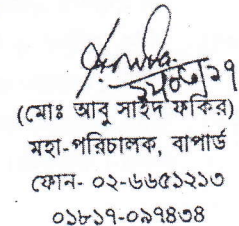 (মোঃ আবু সাইদ ফকির)
মহা-পরিচালক, বাপার্ড
ফোন- ০২-৬৬৫১২১৩
০১৮১৭-০৯৭৪৩৪